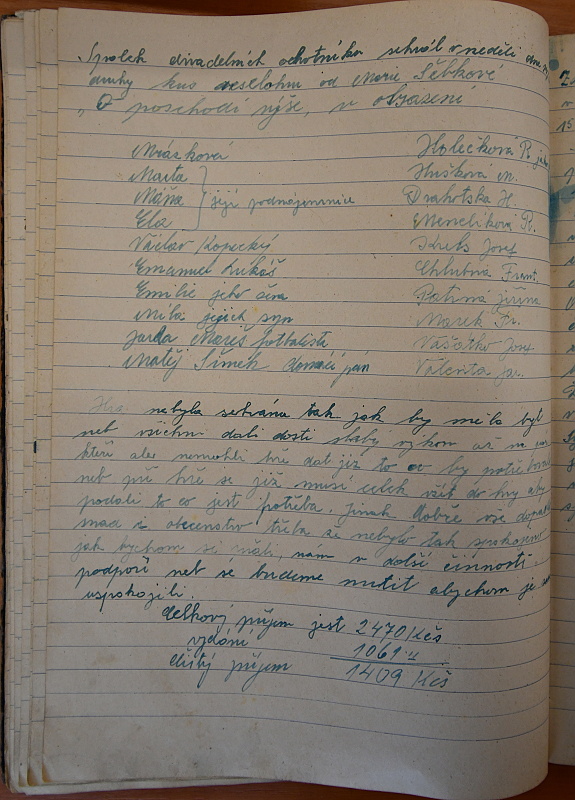 Spolek divadelních ochotníků sehrál v neděli dne
druhý kus veselohru od Marie Sebkové
„O poschodí výše, v obsazení
Mrázková Holečková R.
Marta Hušková M.
Máňa } její podnájemnice Drahotská H.
Ela Menclíková R.
Václav Kopecký Krebs Josef
Emanuel Lukáš Chlubna Frant.
Emilie jeho žena Patrná Jiřina
Míla jejich syn Marek Fr.
Jarda Mareš fotbalista Vašátko Josef
Matěj Šimek domácí pán Valenta Jar.
Hra nebyla sehrána tak jak by měla být
neb všichni dali dosti slabý výkon až na
kteří ale nemohli hře dát již to co by
neb při hře se již musí celek vžít do hry aby
podali to co jest potřeba. Jinak dobře vše
i obecenstvo třeba že nebylo tak spokojeno
jak bychom si přáli, nám v další činnosti
podpoří neb se budeme nutit abychom je
uspokojili.
Celkový příjem jest 2470 Kčs
vydání 1061 "
čistý příjem 1409 Kčs